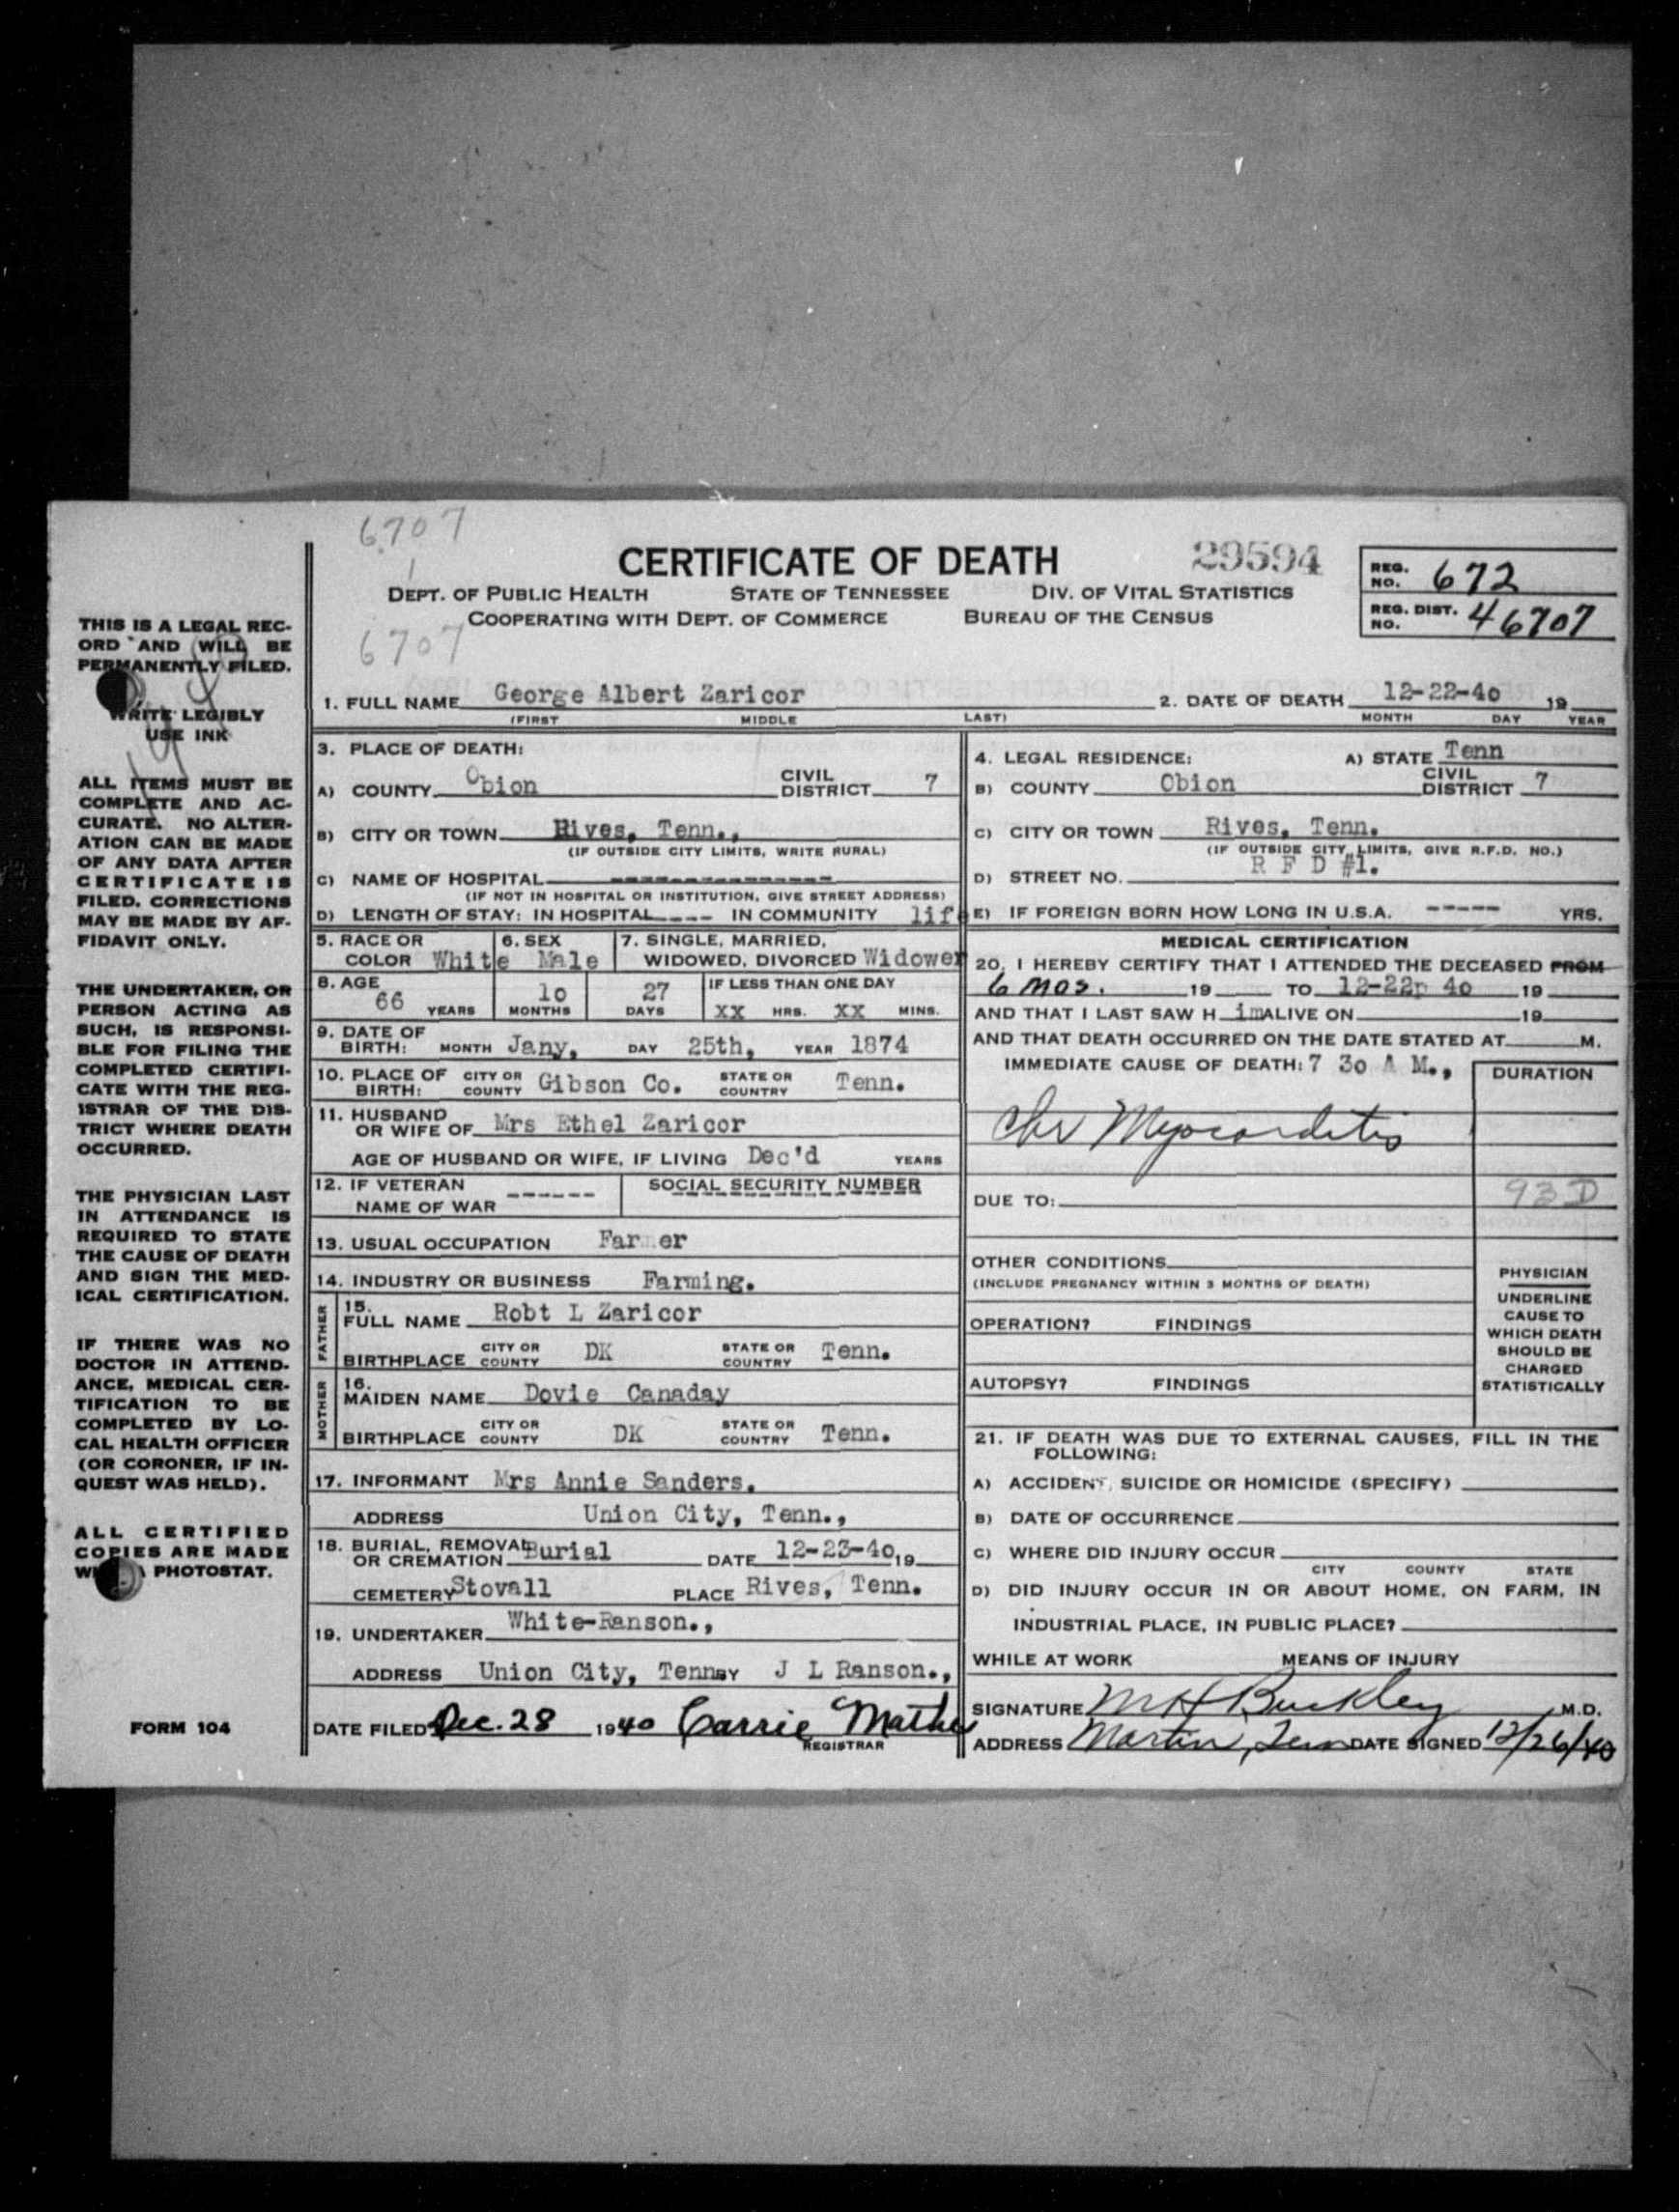 6707
1
CERTIFICATE OF DEATH 29594
REG. NO. 672
DEPT. OF PUBLIC HEALTH STATE OF TENNESSEE DIV. OF VITAL STATISTICS
COOPERATING WITH DEPT. OF COMMERCE BUREAU OF THE CENSUS
REG. DIST. NO. 46707
6707
THIS IS A LEGAL REC-
ORD AND WILL BE
PERMANENTLY FILED.
WRITE LEGIBLY
USE INK
ALL ITEMS MUST BE
COMPLETE AND AC-
CURATE. NO ALTER-
ATION CAN BE MADE
OF ANY DATA AFTER
CERTIFICATE IS
FILED. CORRECTIONS
MAY BE MADE BY AF-
FIDAVIT ONLY.
THE UNDERTAKER, OR
PERSON ACTING AS
SUCH, IS RESPONSI-
BLE FOR FILING THE
COMPLETED CERTIFI-
CATE WITH THE REG-
ISTRAR OF THE DIS-
TRICT WHERE DEATH
OCCURRED.
THE PHYSICIAN LAST
IN ATTENDANCE IS
REQUIRED TO STATE
THE CAUSE OF DEATH
AND SIGN THE MED-
ICAL CERTIFICATION.
IF THERE WAS NO
DOCTOR IN ATTEND-
ANCE, MEDICAL CER-
TIFICATION TO BE
COMPLETED BY LO-
CAL HEALTH OFFICER
(OR CORONER, IF IN-
QUEST WAS HELD).
ALL CERTIFIED
COPIES ARE MADE
PHOTOSTAT.
FORM 104
1. FULL NAME George Albert Zaricor 2. DATE OF DEATH 12-22-40 19
(FIRST MIDDLE LAST) MONTH DAY YEAR
3. PLACE OF DEATH:
A) COUNTY Obion CIVIL DISTRICT 7
B) CITY OR TOWN Rives, Tenn.,
(IF OUTSIDE CITY LIMITS, WRITE RURAL)
C) NAME OF HOSPITAL ------------
(IF NOT IN HOSPITAL OR INSTITUTION, GIVE STREET ADDRESS)
D) LENGTH OF STAY: IN HOSPITAL ---- IN COMMUNITY life
5. RACE OR COLOR White 6. SEX Male 7. SINGLE, MARRIED, WIDOWED, DIVORCED Widower
8. AGE 66 YEARS 10 MONTHS 27 DAYS IF LESS THAN ONE DAY XX HRS. XX MINS.
9. DATE OF BIRTH: MONTH Jany, DAY 25th, YEAR 1874
10. PLACE OF BIRTH: CITY OR COUNTY Gibson Co. STATE OR COUNTRY Tenn.
11. HUSBAND OR WIFE OF Mrs Ethel Zaricor
AGE OF HUSBAND OR WIFE, IF LIVING Dec'd YEARS
12. IF VETERAN NAME OF WAR ------ SOCIAL SECURITY NUMBER
13. USUAL OCCUPATION Farmer
14. INDUSTRY OR BUSINESS Farming.
FATHER
15. FULL NAME Robt L Zaricor
BIRTHPLACE CITY OR COUNTY DK STATE OR COUNTRY Tenn.
MOTHER
16. MAIDEN NAME Dovie Canaday
BIRTHPLACE CITY OR COUNTY DK STATE OR COUNTRY Tenn.
17. INFORMANT Mrs Annie Sanders.
ADDRESS Union City, Tenn.,
18. BURIAL, REMOVAL OR CREMATION Burial DATE 12-23-40 19
CEMETERY Stovall PLACE Rives, Tenn.
19. UNDERTAKER White-Ranson.,
ADDRESS Union City, Tenn BY J L Ranson.,
DATE FILED Dec. 28 1940 Carrie
REGISTRAR
4. LEGAL RESIDENCE: A) STATE Tenn
B) COUNTY Obion CIVIL DISTRICT 7
C) CITY OR TOWN Rives, Tenn.
(IF OUTSIDE CITY LIMITS, GIVE R.F.D. NO.)
D) STREET NO. R F D #1.
E) IF FOREIGN BORN HOW LONG IN U.S.A. ----- YRS.
MEDICAL CERTIFICATION
20. I HEREBY CERTIFY THAT I ATTENDED THE DECEASED FROM
6 mos. 19 TO 12-22 40 19
AND THAT I LAST SAW H im ALIVE ON 19
AND THAT DEATH OCCURRED ON THE DATE STATED AT M.
IMMEDIATE CAUSE OF DEATH: 7 30 A M., DURATION
Chr Myocarditis
DUE TO: 93D
OTHER CONDITIONS
(INCLUDE PREGNANCY WITHIN 3 MONTHS OF DEATH)
OPERATION? FINDINGS
AUTOPSY? FINDINGS
PHYSICIAN
UNDERLINE
CAUSE TO
WHICH DEATH
SHOULD BE
CHARGED
STATISTICALLY
21. IF DEATH WAS DUE TO EXTERNAL CAUSES, FILL IN THE
FOLLOWING:
A) ACCIDENT, SUICIDE OR HOMICIDE (SPECIFY)
B) DATE OF OCCURRENCE
C) WHERE DID INJURY OCCUR
CITY COUNTY STATE
D) DID INJURY OCCUR IN OR ABOUT HOME, ON FARM, IN
INDUSTRIAL PLACE, IN PUBLIC PLACE?
WHILE AT WORK MEANS OF INJURY
SIGNATURE M H Buckley M.D.
ADDRESS Martin, Tenn DATE SIGNED 12/26/40